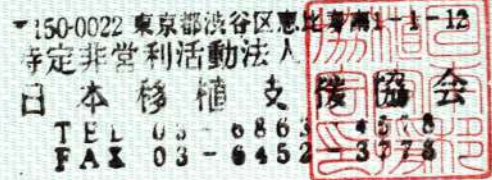 〒150-0022 東京都渋谷区恵比寿南1-1-12
特定非営利活動法人
日本移植支援協会
TEL 03-6863-4578
FAX 03-6452-3778